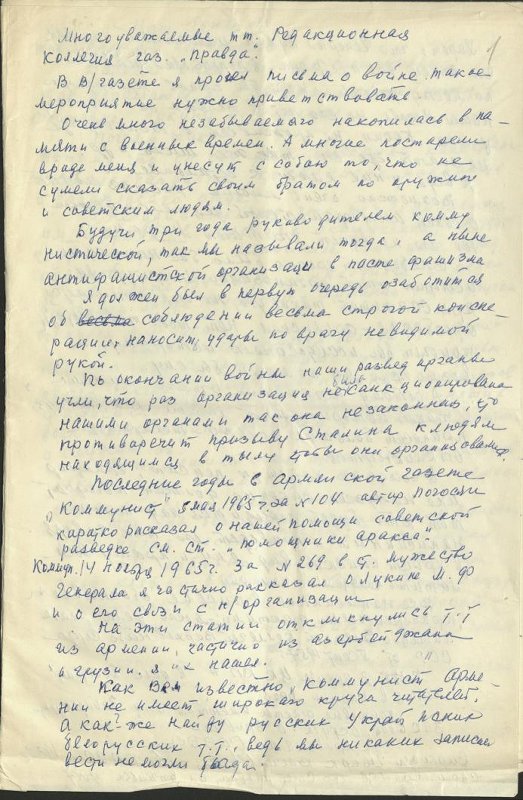 1
Многоуважаемые т.т. Редакционная
коллегия газ. „Правда".
В В/газете я прочел письма о войне такое
мероприятие нужно приветствовать
Очень много незабываемого накопилась в па-
мяти с военных времен. А многие постарели
вроде меня и унесут с собою то, что не
сумели сказать своим братом по оружию
и советским людям.
Будучи три года руководителем комму
нистической, так мы называли тогда, а ныне
антифашистской организаци в пасте фашизма
Я должен был в первую очередь озаботится
об весьма соблюдении весьма строгой конспе-
рации наносить удары по врагу невидимой
рукой.
По окончании войны наши развед органы
учли, что раз организация не была санкционирована
нашими органами так она незаконная, что
противоречит призыву Сталина к людям
находящимся в тылу чтобы они организовали
Последние годы в армянской газете
„Коммунист" 5 мая 1965 г за N 104 автор Погосян
каротко рассказал о нашей помощи советской
разведке см. ст. „Помощники аракса".
Комун. 14 1965 г. За N 269 в ст. мужество
Генерала я частично рассказал о Лукине М. Ф
и о его связи с н/организации
На эти статии откликнулись т.т
из армении, частично из азербейджана
и грузии. я их нашел.
Как Вам известно „Коммунист Арме-
нии не имеет широкого круга читателей.
А как-же найду русских Украй нских
белорусских т.т., ведь мы никаких записей
вести не могли тогда.